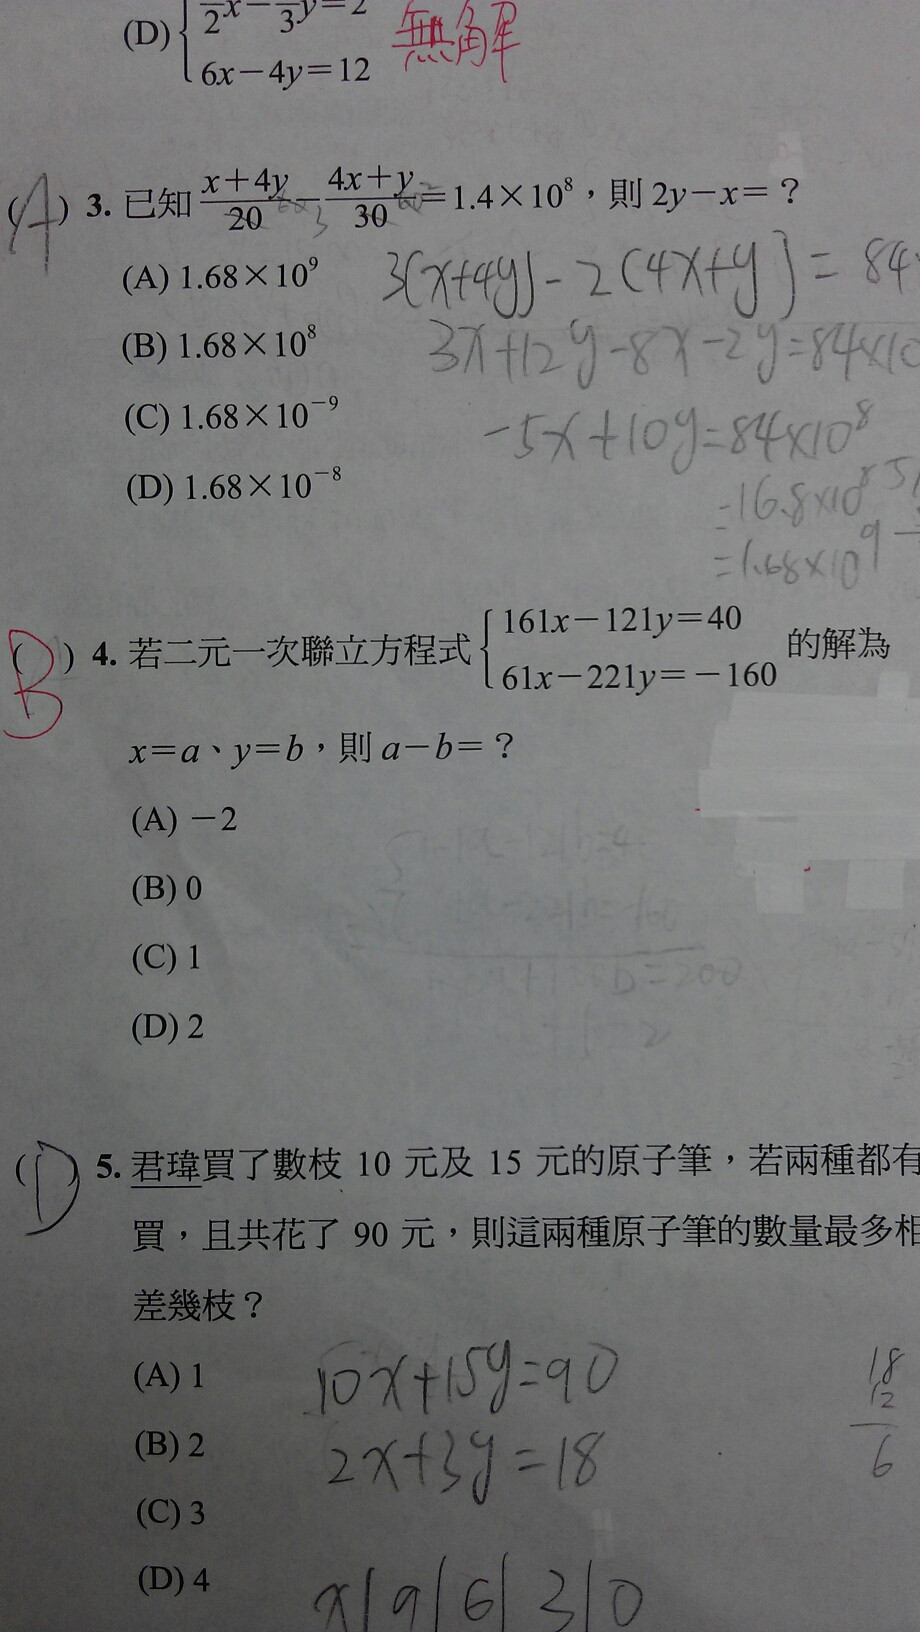 (D) { 2x－3y＝2
6x－4y＝12 無解
(A) 3. 已知 x＋4y/20 － 4x＋y/30 ＝1.4×10⁸，則 2y－x＝？
(A) 1.68×10⁹ 3(x+4y)-2(4x+y)=84
(B) 1.68×10⁸ 3x+12y-8x-2y=84×10
(C) 1.68×10⁻⁹ -5x+10y=84×10⁸
(D) 1.68×10⁻⁸ =16.8×10⁸
=1.68×10⁹
(B) 4. 若二元一次聯立方程式 { 161x－121y＝40
61x－221y＝－160 的解為
x＝a、y＝b，則 a－b＝？
(A) －2
(B) 0
(C) 1
(D) 2
(D) 5. 君瑋買了數枝 10 元及 15 元的原子筆，若兩種都有
買，且共花了 90 元，則這兩種原子筆的數量最多相
差幾枝？
(A) 1 10x+15y=90 18
(B) 2 2x+3y=18 12
(C) 3 6
(D) 4 x|9|6|3|0